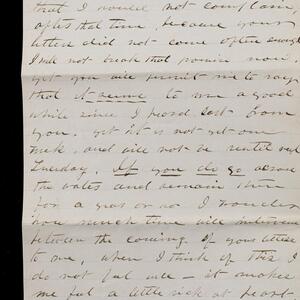 that I would not complain
after that time, because your
letters did not come often enough
I will not break that promise now.
yet you will permit me to say
that it seems to me a good
while since I heard last from
you. yet it is not yet one
week, and will not be until
Tuesday. If you do go across
the water and remain there
for a year or so I wonder
how much time will intervene
between the coming of your letters
to me, when I think of this I
do not feel well – it makes
me feel a little sick at heart